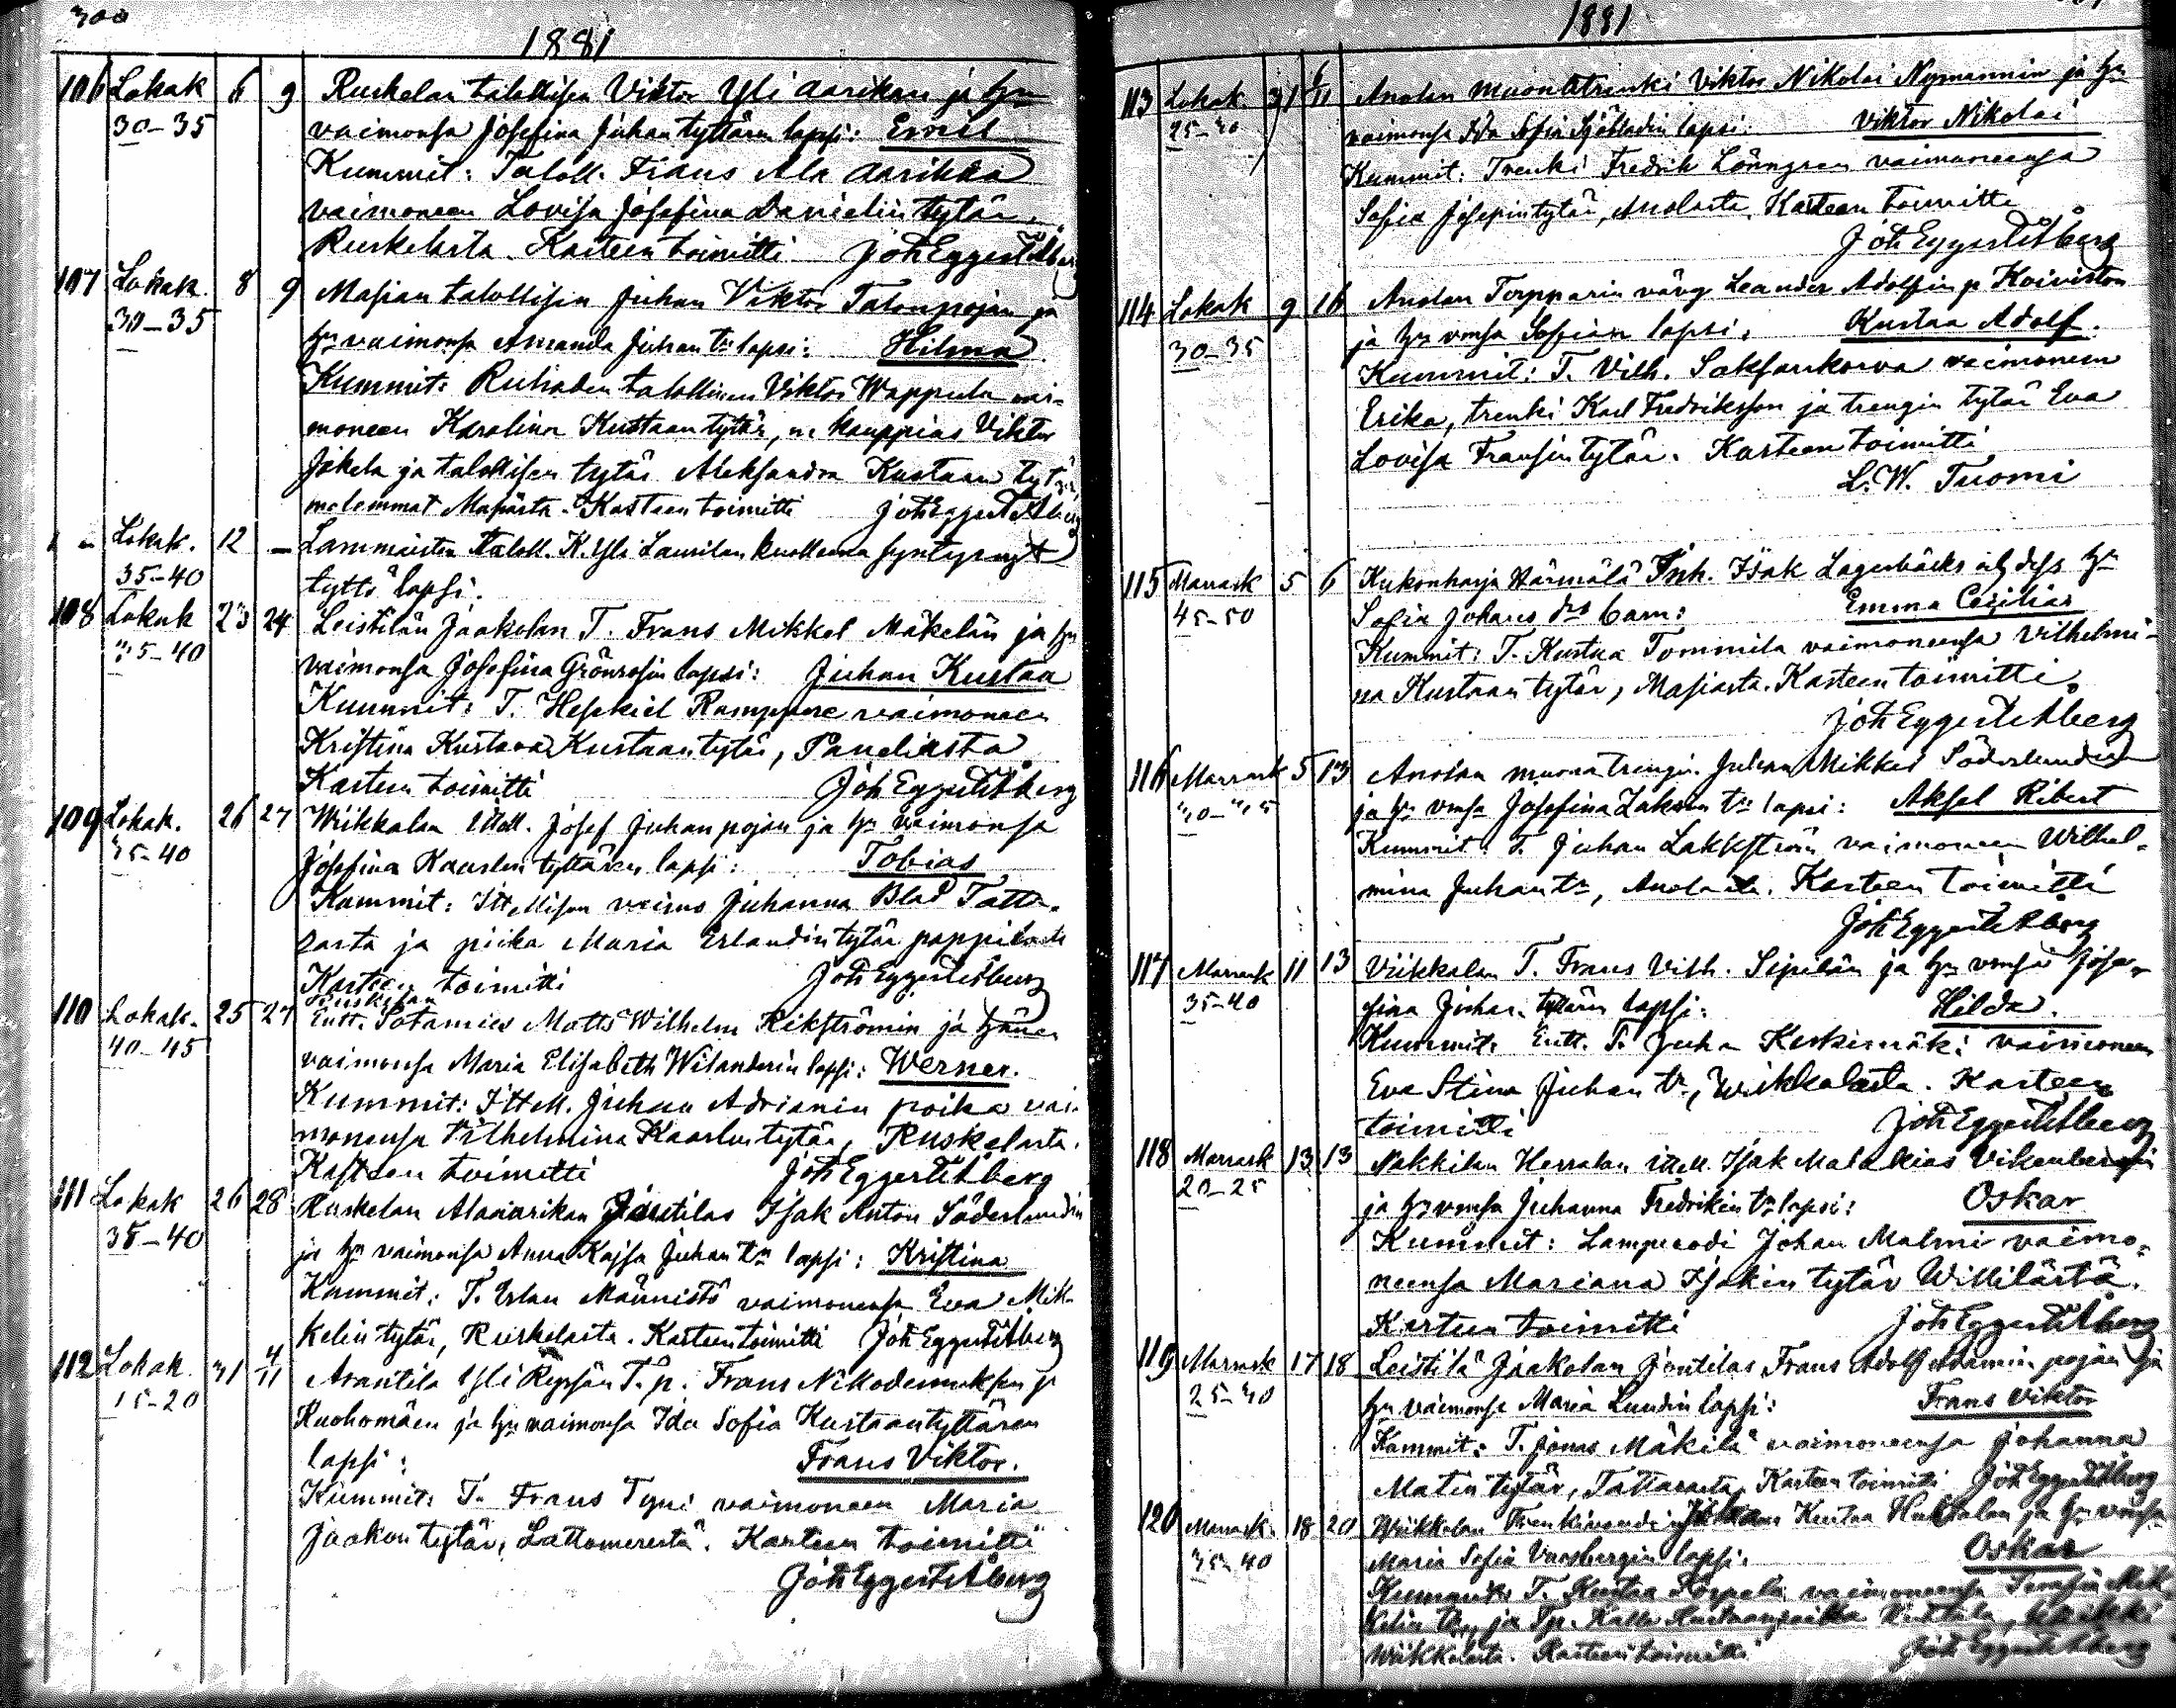 300
1881
106 Lokak 6 9 Ruskelan talollisen Viktor Yli Aarikan ja hän
30-35 vaimonsa Josefina Juhan tyttären lapsi: Emil
Kummit: Taloll. Frans Ala Aarikka
vaimoneen Lovisa Josefina Danielin tytär
Ruskelasta. Kasteen toimitti Joh Eggert Åberg
107 Lokak. 8 9 Masian talollisen Juhan Viktor Talonpojan ja
30-35 hn vaimonsa Amanda Juhan tr lapsi: Hilma
Kummit: talollinen Viktor Wappula vai-
moneen Karolina Kustaan tytär, kauppias Viktor
Jokela ja talollisen tytär Aleksandra Kustaan tytär
molemmat Masiasta. Kasteen toimitti Joh Eggert Åberg
Lokak. 12 - Lammaisten Taloll. K. Yli Laurilan kuolleena syntynyt
35-40 tyttö lapsi.
108 Lokak 23 24 Leistilän Jaakolan T. Frans Mikkel Mäkelän ja hn
35-40 vaimonsa Josefina Grönrosin lapsi: Juhan Kustaa
Kummit: T. Heskiel Ramppare vaimoneen
Kristina Kustava Kustaantytär, Paneliasta
Kasteen toimitti Joh Eggert Åberg
109 Lokak. 26 27 Wiikkalan Itsell. Josef Juhan pojan ja hn vaimonsa
35-40 Josefina Kaarlen tyttären lapsi: Tobias
Kummit: Itsellisen vaimo Juhanna Blad Tatta-
rasta ja piika Maria Erlandin tytär pappilasta
Kasteen toimitti Joh Eggert Åberg
Ruskelan
110 Lokak. 25 27 Entt. Sotamies Matts Wilhelm Rikströmin ja hänen
40-45 vaimonsa Maria Elisabeth Wilanderin lapsi: Werner.
Kummit: Itsell. Juhan Adrianin poika vai-
monensa Vilhelmina Kaarlentytär, Ruskelasta.
Kasteen toimitti Joh Eggert Åberg
111 Lokak 26 28 Ruskelan Alaaarikan Jäutilas Isak Anton Söderlundin
35-40 ja hn vaimonsa Anna Kajsa Juhan tr lapsi: Kristina
Kummit: T. Erlan Männistö vaimonensa Eva Mik-
kelin tytär, Ruskelasta. Kasteen toimitti Joh Eggert Åberg
112 Lokak 31 4/11 Arantila Yli Repsän T.p. Frans Nikodemuksen p
15-20 Ruohomäen ja hn vaimonsa Ida Sofia Kustaantyttären
lapsi: Frans Viktor.
Kummit: T. Frans Tyni vaimoneen Maria
Jaakon tytär, Lattomerestä. Kasteen toimitti
Joh Eggert Åberg
1881
113 Lokak. 31 6/11 Anolan muonatrenki Viktor Nikolai Nymannin ja hn
25-30 vaimonsa Ida Sofia Sjöbladin lapsi: Viktor Nikolai
Kummit: Trenki Fredrik Lönngren vaimoneensa
Sofia Josepintytär, Anolasta. Kasteen toimitti
Joh Eggert Åberg
114 Lokak 9 16 Anolan Torpparin vävy Leander Adolfin p. Koiviston
30-35 ja hn vmsa Sofian lapsi: Kustaa Adolf.
Kummit: T. Vilh. Saksankorva vaimoneen
Erika, trenki Karl Fredriksson ja trengin tytär Eva
Lovisa Fransin tytär. Kasteen toimitti
L. W. Tuomi
115 Marrask 5 6 Kukonharja Härmälä Inh. Isak Lagerbäcks och dess hu
45-50 Sofia Johans dr barn: Emma Cecilia
Kummit: T. Kustaa Tommila vaimoneensa Vilhelmi-
na Kustaan tytär, Masiasta. Kasteen toimitti
Joh Eggert Åberg
116 Marrask 5 13 Anolan muona trengin Juhan Mikkel Söderlundin
ja hn vmsa Josefina Isakin tr lapsi: Aksel Ribert
Kummit: T. Juhan Lakkström vaimoneen Wilhel-
mina Juhan tr, Anolasta. Kasteen toimitti
Joh Eggert Åberg
117 Marrask 11 13 Viikkalan T. Frans Vilh. Sipilän ja hn vmsa Jose-
35-40 fina Juhan tyttären lapsi: Hilda.
Kummit: Entt. T. Juha Keskimäki vaimoneen
Eva Stina Juhan tr, Wiikkalasta. Kasteen
toimitti Joh Eggert Åberg
118 Marrask 13 13 Nakkilan Herralan itsell. Isak Malakias Vikenbergin
20-25 ja hn vmsa Juhanna Fredrikin tr lapsi: Oskar
Kummit: Lampuodi Johan Malmi vaimo-
neensa Mariana Isakin tytär Willilästä.
Kasteen toimitti Joh Eggert Åberg
119 Marrask 17 18 Leistilä Jaakolan Jontilas Frans Adolf Adamin pojan ja
25-30 hn vaimonsa Maria Lundin lapsi: Frans Viktor
Kummit: T. Jonas Mäkilä vaimoneensa Johanna
Matin tytär, Tattarasta. Kasteen toimitti Joh Eggert Åberg
120 Marrask. 18 20 Wiikkalan Kustaa ja hn vmsa
35-40 Maria Sofia lapsi: Oskar
Kummit: T. Kustaa vaimoneensa Serafia Mik-
kelin tr, ja Tp. Kalle Kustaanpoika kaikki
Wiikkalasta. Kasteen toimitti Joh Eggert Åberg